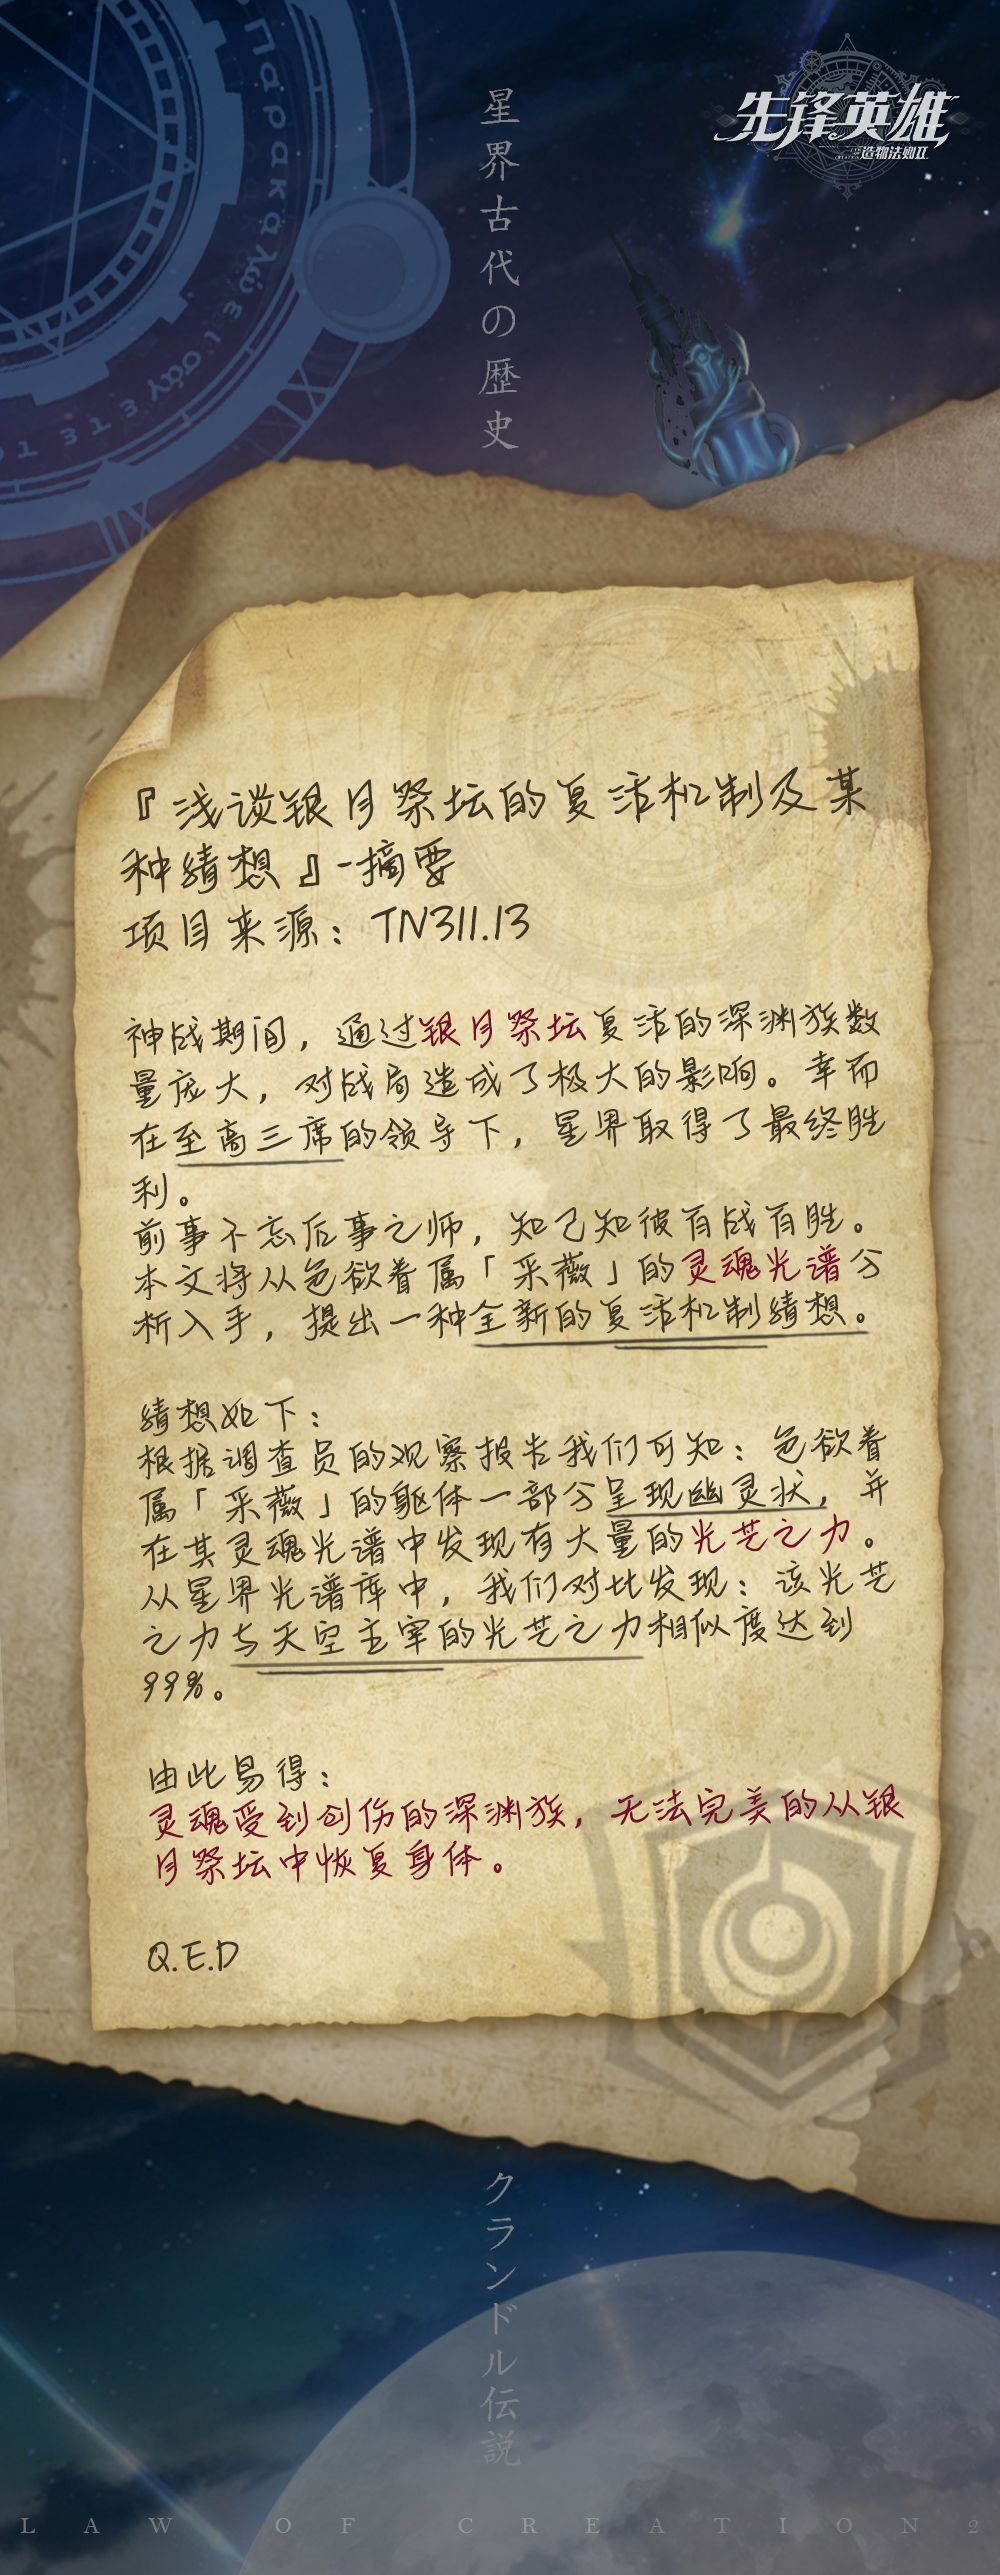 星界古代の歴史
先锋英雄
造物法则II
『浅谈银月祭坛的复活机制及某
种猜想』-摘要
项目来源：TN311.13
神战期间，通过银月祭坛复活的深渊族数
量庞大，对战局造成了极大的影响。幸而
在至高三席的领导下，星界取得了最终胜
利。
前事不忘后事之师，知己知彼百战百胜。
本文将从色欲眷属「采薇」的灵魂光谱分
析入手，提出一种全新的复活机制猜想。
猜想如下：
根据调查员的观察报告我们可知：色欲眷
属「采薇」的躯体一部分呈现幽灵状，并
在其灵魂光谱中发现有大量的光芒之力。
从星界光谱库中，我们对比发现：该光芒
之力与天空主宰的光芒之力相似度达到
99%。
由此易得：
灵魂受到创伤的深渊族，无法完美的从银
月祭坛中恢复身体。
Q.E.D
クランドル伝説
LAW OF CREATION2